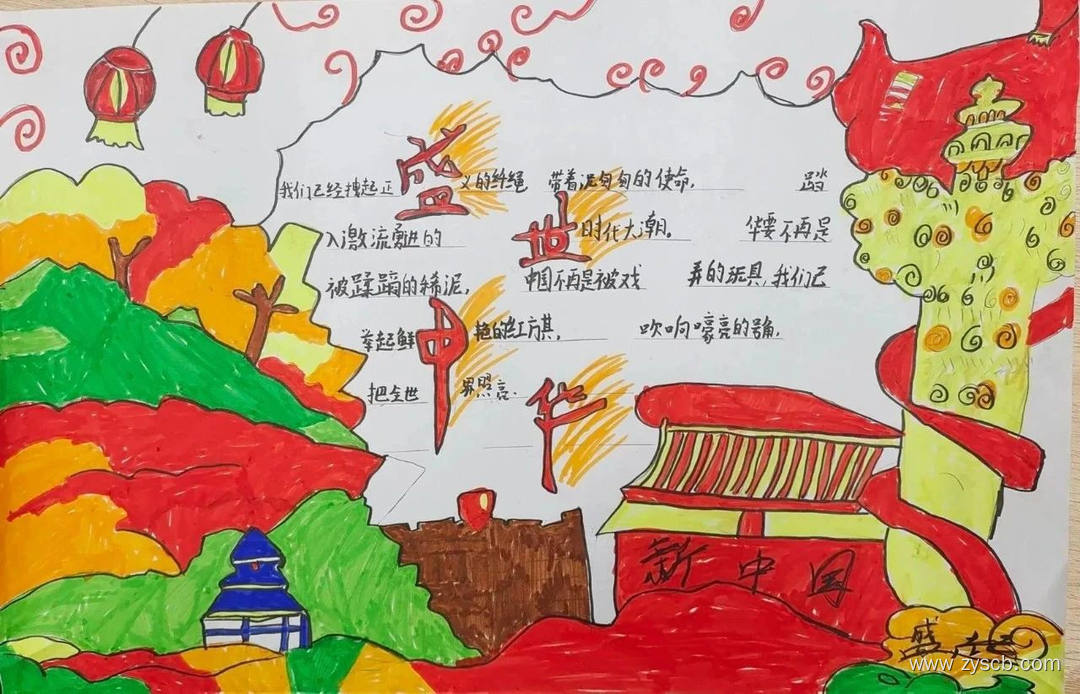 我们已经撑起正盛义的纤绳 带着泥匈匈的使命, 踏
入激流勇进的 世 时代大潮。 华要不再是
被蹂蹋的稀泥, 中国不再是被戏 弄的玩具,我们已
举起鲜 中 艳的红方其, 吹响嚎亮的号角,
把全世 界照亮.
华
新中国
盛
www.zyscb.com